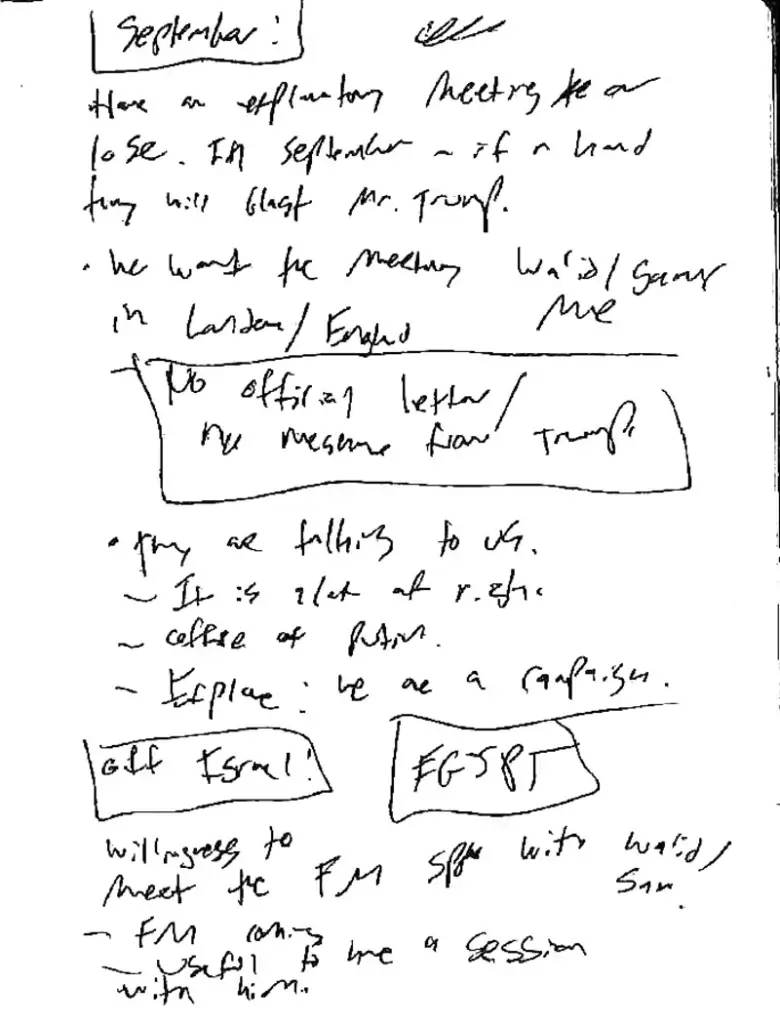 September:
Have an exploratory meeting
lose. In September – if a hand
they will blast Mr. Trump.
• We want the meeting Walid/
in London/England
No official letter/
no message from Trump.
• They are talking to us.
– It is a lot of
– office of Putin.
– Explore: we are a campaign.
Off Israel!
EGYPT
Willingness to
meet the FM with Walid/
Sam.
– FM coming
– useful to have a session
with him.